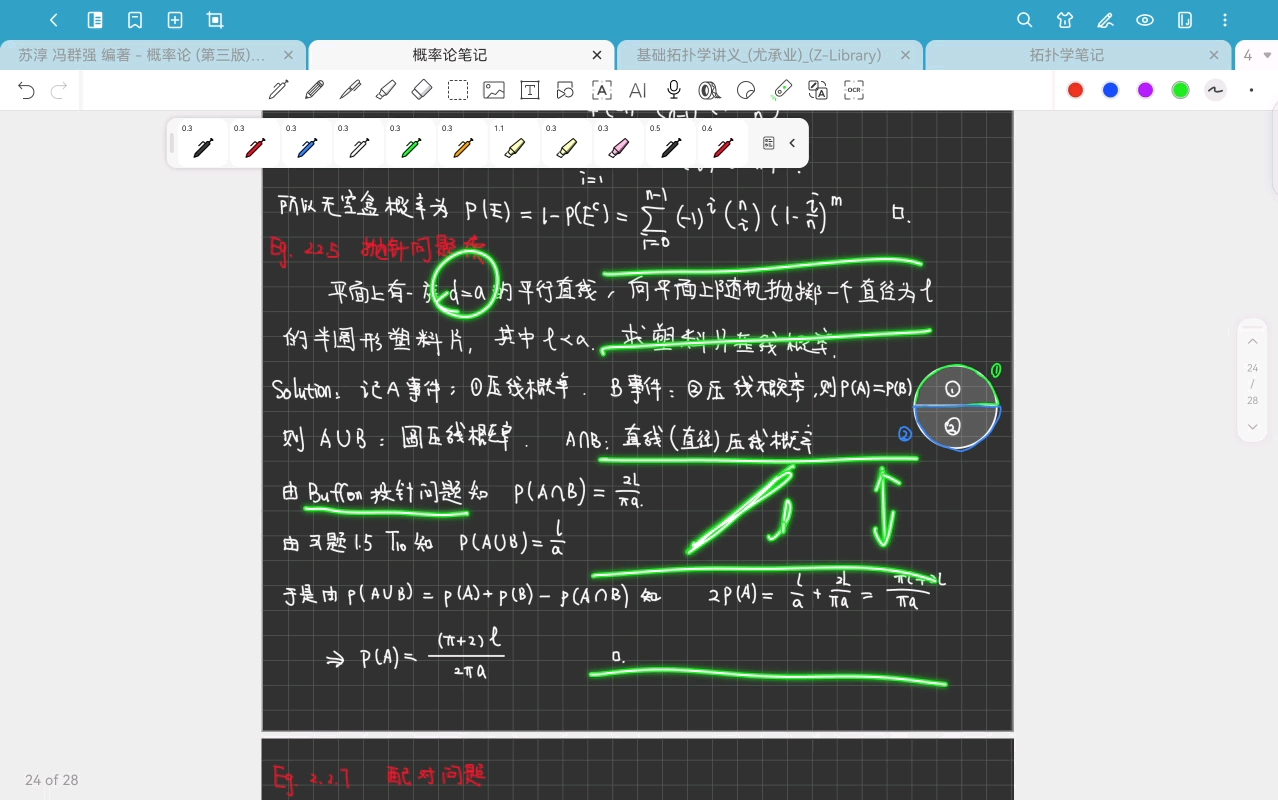 苏淳 冯群强 编著 - 概率论 (第三版)...
概率论笔记
基础拓扑学讲义_(尤承业)_(Z-Library)
拓扑学笔记
4
T A AI A OCR
0.3 0.3 0.3 0.3 0.3 0.3 1.1 0.3 0.3 0.5 0.6
i=1
所以无空盒概率为 P(E) = 1-P(E^c) = ∑_{i=0}^{n-1} (-1)^i (n i) (1-i/n)^m □.
Eg. 2.2.5 抛针问题
平面上有一族 d=a 的平行直线, 向平面上随机抛掷一个直径为 l
的半圆形塑料片, 其中 l<a. 求塑料片压线概率.
Solution: 记A事件: ①压线概率. B事件: ②压线概率, 则P(A)=P(B)
则 A∪B: 圆压线概率. A∩B: 直线(直径)压线概率
① ①
② ②
由 Buffon 投针问题知 P(A∩B) = 2l/πa.
l
由习题1.5 T10 知 P(A∪B) = l/a
于是由 P(A∪B) = P(A)+P(B)-P(A∩B) 知 2P(A) = l/a + 2l/πa = πl+2l/πa
⇒ P(A) = (π+2)l/2πa □.
24
/
28
24 of 28
Eg. 2.2.7 配对问题